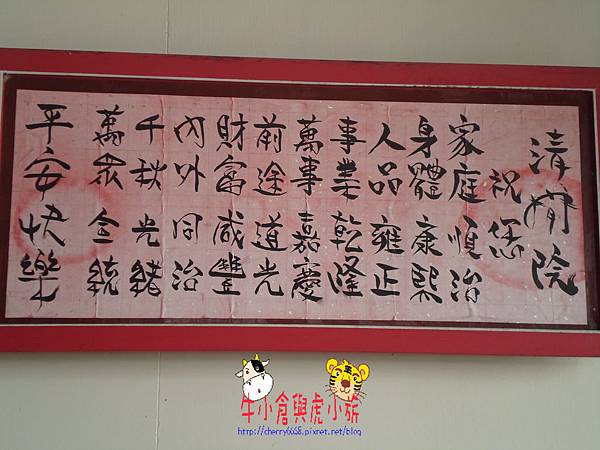 清境院
祝您
家庭順治
身體康熙
人品雍正
事業乾隆
萬事嘉慶
前途道光
財富咸豐
內外同治
千秋光緒
萬眾全統
平安快樂
牛小倉與虎小旂
http://cherry6668.pixnet.net/blog